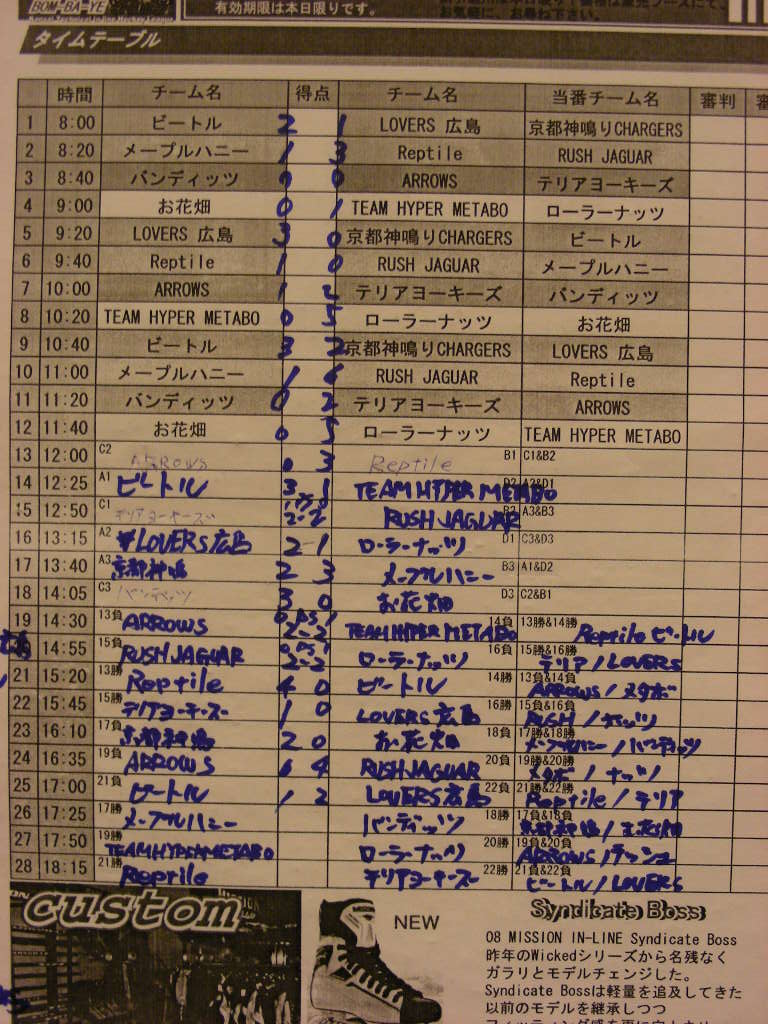 BOM-BA-YE
有効期限は本日限りです。
タイムテーブル
時間 チーム名 得点 チーム名 当番チーム名 審判
1 8:00 ビートル 2 1 LOVERS 広島 京都神鳴りCHARGERS
2 8:20 メープルハニー 1 3 Reptile RUSH JAGUAR
3 8:40 バンディッツ 0 ARROWS テリアヨーキーズ
4 9:00 お花畑 0 1 TEAM HYPER METABO ローラーナッツ
5 9:20 LOVERS 広島 3 0 京都神鳴りCHARGERS ビートル
6 9:40 Reptile 1 0 RUSH JAGUAR メープルハニー
7 10:00 ARROWS 1 2 テリアヨーキーズ バンディッツ
8 10:20 TEAM HYPER METABO 0 5 ローラーナッツ お花畑
9 10:40 ビートル 3 2 京都神鳴りCHARGERS LOVERS 広島
10 11:00 メープルハニー 1 6 RUSH JAGUAR Reptile
11 11:20 バンディッツ 0 2 テリアヨーキーズ ARROWS
12 11:40 お花畑 0 5 ローラーナッツ TEAM HYPER METABO
13 12:00 C2 ARROWS 0 3 Reptile B1 C1&B2
14 12:25 A1 ビートル 3 1 TEAM HYPER METABO D2 A2&D1
15 12:50 C1 テリアヨーキーズ 2-2 RUSH JAGUAR B2 A3&B3
16 13:15 A2 LOVERS広島 2-1 ローラーナッツ D1 C3&D3
17 13:40 A3 京都神鳴 2 3 メープルハニー B3 A1&D2
18 14:05 C3 バンディッツ 3 0 お花畑 D3 C2&B1
19 14:30 13負 ARROWS 0 PS 1 2-2 TEAM HYPER METABO 14負 13勝&14勝 Reptile ビートル
14:55 15負 RUSH JAGUAR 0 PS 1 2-2 ローラーナッツ 16負 15勝&16勝 テリア/LOVERS
21 15:20 13勝 Reptile 4 0 ビートル 14勝 13負&14負 ARROWS/メタボ
22 15:45 15勝 テリアヨーキーズ 1 0 LOVERS広島 16勝 15負&16負 RUSH/ナッツ
23 16:10 17負 京都神鳴 2 0 お花畑 18負 17勝&18勝 メープルハニー/バンディッツ
24 16:35 19負 ARROWS 6 4 RUSH JAGUAR 20負 19勝&20勝 メタボ/ナッツ
25 17:00 21負 ビートル 1 2 LOVERS広島 22負 21勝&22勝 Reptile/テリア
26 17:25 17勝 メープルハニー バンディッツ 18勝 17負&18負 京都神鳴/お花畑
27 17:50 19勝 TEAM HYPER METABO ローラーナッツ 20勝 19負&20負 ARROWS/ラッシュ
28 18:15 21勝 Reptile テリアヨーキーズ 22勝 21負&22負 ビートル/LOVERS
custom
NEW
Syndicate Boss
08 MISSION IN-LINE Syndicate Boss
昨年のWickedシリーズから名残なく
ガラリとモデルチェンジした。
Syndicate Bossは軽量を追及してきた
以前のモデルを継承しつつ